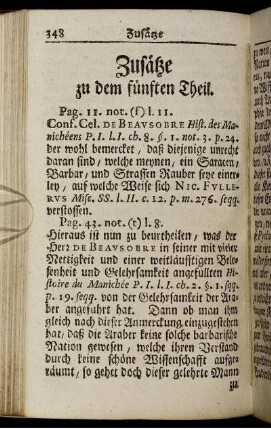 348 Zusätze
Zusätze
zu dem fünften Theil.
Pag. 11. not. (f) l. 11.
Conf. Cel. DE BEAUSOBRE Hist. des Ma-
nichéens P. I. l. I. ch. 8. §. 1. not. 3. p. 24.
der wohl bemercket, daß diejenige unrecht
daran sind, welche meynen, ein Saracen,
Barbar, und Strassen Rauber seye einer-
ley, auf welche Weise sich NIC. FVLLE-
RVS Misc. SS. l. II. c. 12. p. m. 276. seqq.
verstossen.
Pag. 43. not. (t) l. 8.
Hieraus ist nun zu beurtheilen, was der
Herr DE BEAUSOBRE in seiner mit vieler
Nettigkeit und einer weitläufftigen Bele-
senheit und Gelehrsamkeit angefüllten Hi-
stoire du Manichée P. I. l. I. ch. 2. §. 1. sqq.
p. 19. seqq. von der Gelehrsamkeit der Ara-
ber angeführt hat. Dann ob man ihm
gleich nach dieser Anmerckung eingestehen
hat, daß die Araber keine solche barbarische
Nation gewesen, welche ihren Verstand
durch keine schöne Wissenschafft aufge-
räumt, so gehet doch dieser gelehrte Mann
zu